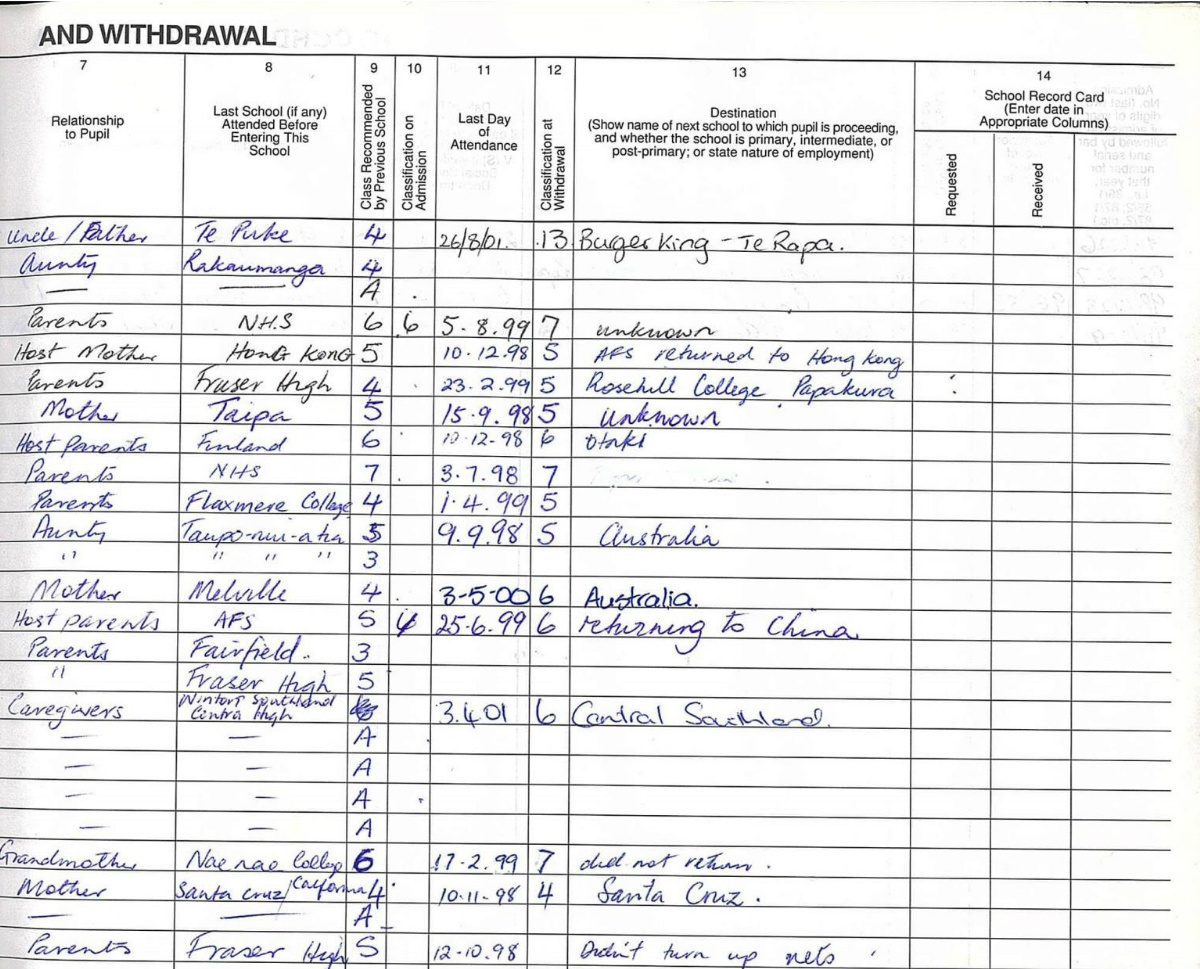 AND WITHDRAWAL
7 8 9 10 11 12 13 14
Relationship to Pupil
Last School (if any) Attended Before Entering This School
Class Recommended by Previous School
Classification on Admission
Last Day of Attendance
Classification at Withdrawal
Destination
(Show name of next school to which pupil is proceeding, and whether the school is primary, intermediate, or post-primary; or state nature of employment)
School Record Card (Enter date in Appropriate Columns)
Requested
Received
Uncle / Father Te Puke 4 26/8/01. 13 Burger King - Te Rapa.
Aunty Rakaumanga 4
— — A
Parents N.H.S 6 6 5.8.99 7 unknown
Host Mother Hong Kong 5 10.12.98 5 AFS returned to Hong Kong
Parents Fraser High 4 23.2.99 5 Rosehill College Papakura
Mother Taipa 5 15.9.98 5 Unknown
Host Parents Finland 6 10.12.98 6 Otaki
Parents NHS 7 3.7.98 7
Parents Flaxmere College 4 1.4.99 5
Aunty Taupo-nui-a-tia 5 9.9.98 5 Australia
" " " " 3
Mother Melville 4 3-5-00 6 Australia.
Host parents AFS 5 25.6.99 6 returning to China
Parents Fairfield. 3
" Fraser High 5
Caregivers Southland High 3.4.01 6 Central Southland.
— — A
— — A
— — A
— — A
Grandmother Nae nae College 6 17-2.99 7 did not return.
Mother Santa Cruz/California 4 10-11-98 4 Santa Cruz.
— — A
Parents Fraser High 5 12-10.98 Didn't turn up